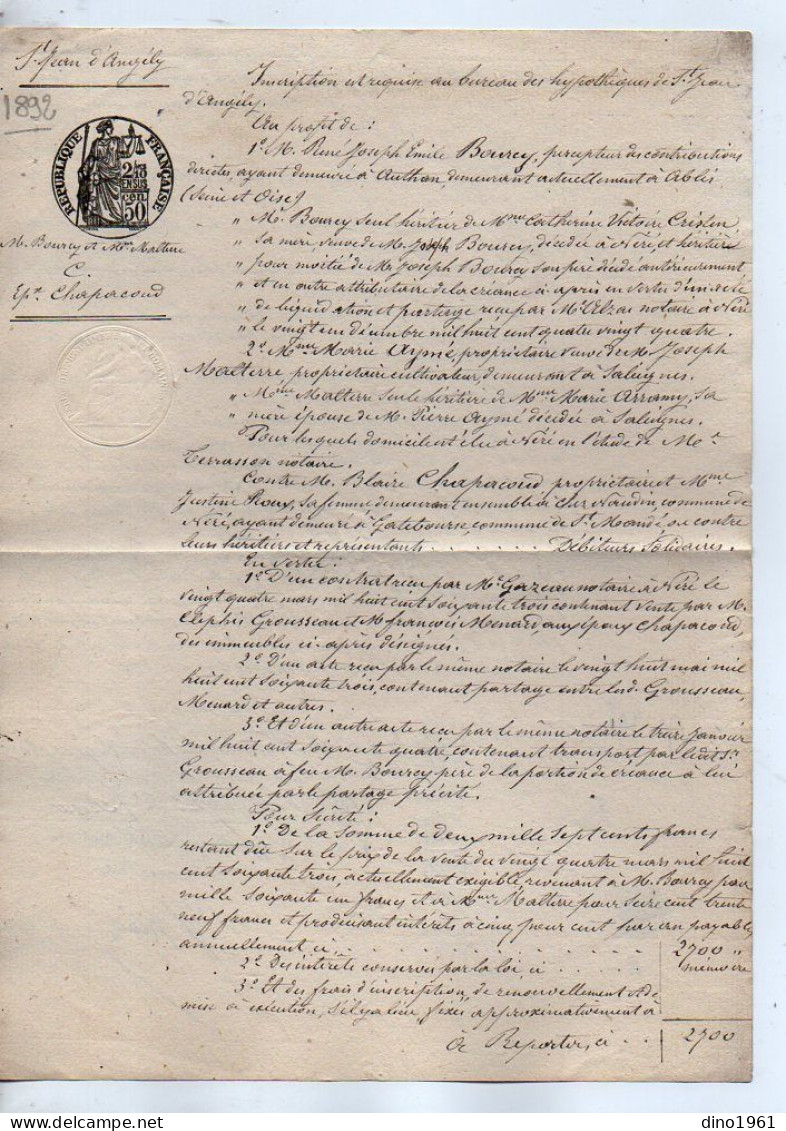 St Jean d'Angély
1892
RÉPUBLIQUE FRANÇAISE
2/10
EN SUS
50
cen
M. Bourcy et Mme Malterre
C.
Epx Chapacoud
Inscription est requise au bureau des hypothèques de St Jean
d'Angély.
Au profit de :
1º M. René Joseph Emile Bourcy, percepteur des contributions
directes, ayant demeuré à Authon, demeurant actuellement à Ablis
(Seine et Oise)
" M. Bourcy seul héritier de Mme Catherine Victoire Cristin
" sa mère veuve de M. Joseph Bourcy, décédée à Néré, et héritier
" pour moitié de M. Joseph Bourcy son père décédé antérieurement
" et en outre attributaire de la créance ci-après en vertu d'un acte
" de liquidation et partage reçu par Me notaire à Néré
" le vingt un décembre mil huit cent quatre vingt quatre.
2º Mme Marie Aymé, propriétaire veuve de M. Joseph
Malterre propriétaire cultivateur, demeurant à Saleignes.
" Mme Malterre seule héritière de Mme Marie Arramy, sa
" mère épouse de M. Pierre Aymé décédée à Saleignes.
Pour lesquels domicile est élu à Néré en l'étude de Me
Terrasson notaire.
Contre M. Blaire Chapacoud propriétaire et Mme
Justine Roux, sa femme demeurant ensemble à chez Naudin, commune de
Néré, ayant demeuré à Gatebourse, commune de St Mandé ou contre
leurs héritiers et représentants . . . . . . Débiteurs Solidaires.
En vertu :
1º D'un contrat reçu par Me Gazeau notaire à Néré le
vingt quatre mars mil huit cent soixante trois contenant vente par M.
Grousseau et M françois Menard, aux époux Chapacoud,
des immeubles ci-après désignés.
2º D'un acte reçu par le même notaire le vingt huit mai mil
huit cent soixante trois, contenant partage entre lesd. Grousseau,
Menard et autres.
3º Et d'un autre acte reçu par le même notaire le treize janvier
mil huit cent soixante quatre, contenant transport par ledit Sr
Grousseau à feu M. Bourcy père de la portion de créance à lui
attribuée par le partage précité.
Pour Sûreté :
1º De la somme de deux mille sept cents francs
restant due sur le prix de la vente du vingt quatre mars mil huit
cent soixante trois, actuellement exigible, revenant à M. Bourcy pour
mille soixante un francs et à Mme Malterre pour seize cent trente
neuf francs et produisant intérêts à cinq pour cent par an payables
annuellement, ci . . . . . . . . 2700 "
2º Des intérêts conservés par la loi, ci . . . . . mémoire
3º Et des frais d'inscription, de renouvellement et de
mise à exécution, s'il y a lieu, fixés approximativement à
à Reporter, ci . . 2700
dino1961